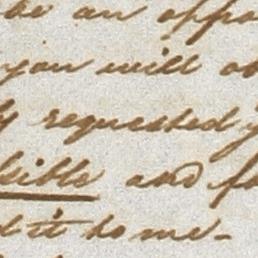 be an oppo
you will ob
y requested y
sible and fo
d it to me-